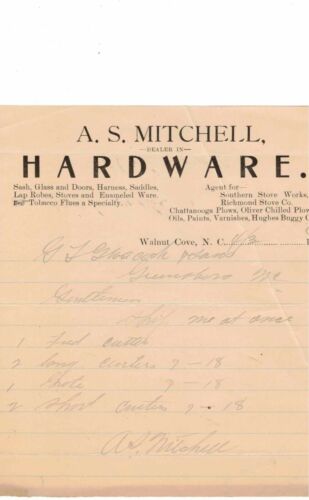 A. S. MITCHELL,
—DEALER IN—
HARDWARE.
Sash, Glass and Doors, Harness, Saddles,
Lap Robes, Stoves and Enameled Ware.
Tobacco Flues a Specialty.
Agent for—
Southern Stove Works,
Richmond Stove Co.
Chattanooga Plows, Oliver Chilled Plow
Oils, Paints, Varnishes, Hughes Buggy C
Walnut Cove, N. C.
Greensboro NC
Gentlemen
Ship me at once
1 Feed cutter
2 long cutters 7-18
1 Short 7-18
2 Short cutters 7-18
A S Mitchell